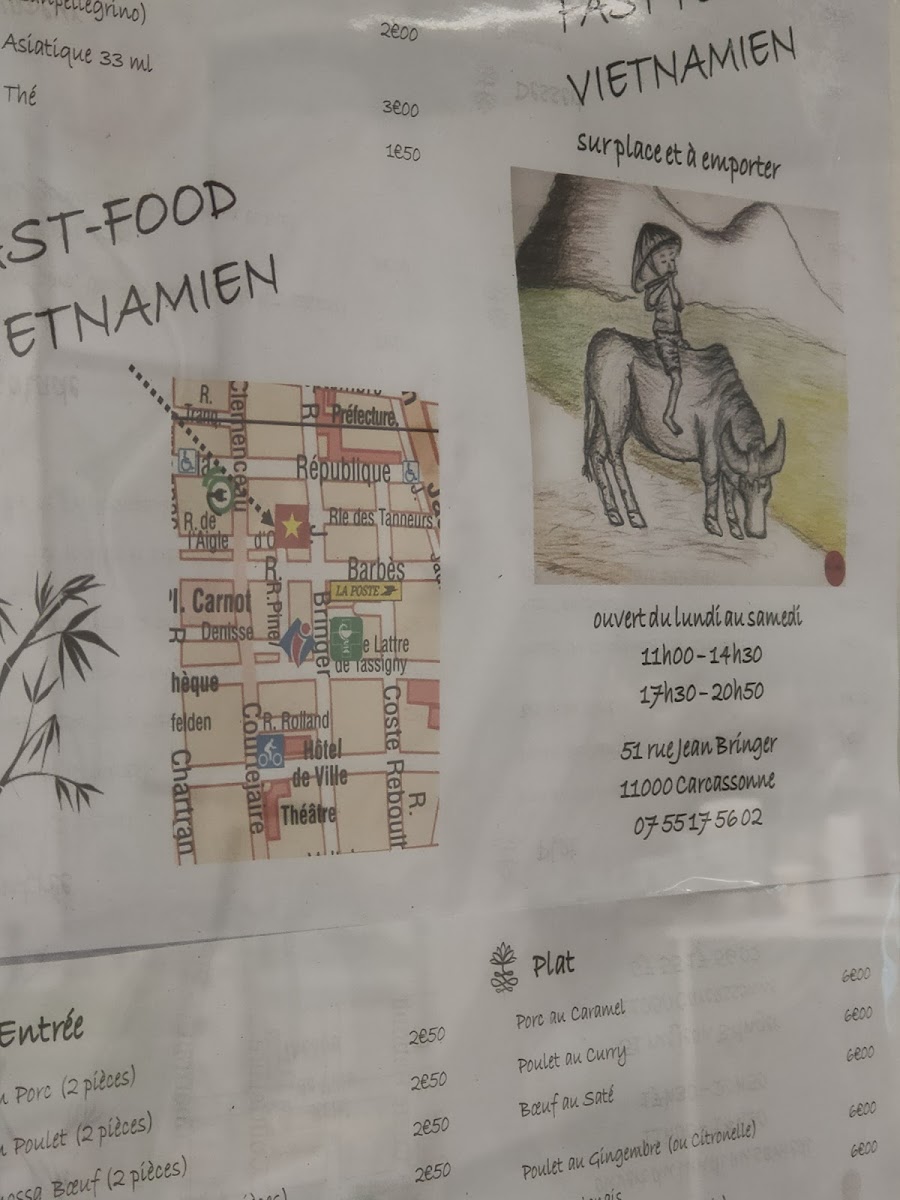 Asiatique 33 ml
Thé
2€00
3€00
1€50
FAST-FOOD
VIETNAMIEN
VIETNAMIEN
sur place et à emporter
R.
Clemenceau
R.
Préfecture
République
R. de
l'Aigle
Rle des Tanneurs
Barbès
LA POSTE
Carnot
Denisse
R.
Bringer
de Lattre
de Tassigny
R. Rolland
Hôtel
de Ville
Théâtre
Chartran
Courtejaire
Coste Reboulh
R.
ouvert du lundi au samedi
11h00 - 14h30
17h30 - 20h50
51 rue Jean Bringer
11000 Carcassonne
07 55 17 56 02
Entrée
Porc (2 pièces)
Poulet (2 pièces)
Bœuf (2 pièces)
2€50
2€50
2€50
2€50
Plat
Porc au Caramel
Poulet au Curry
Bœuf au Saté
Poulet au Gingembre (ou Citronelle)
6€00
6€00
6€00
6€00
6€00